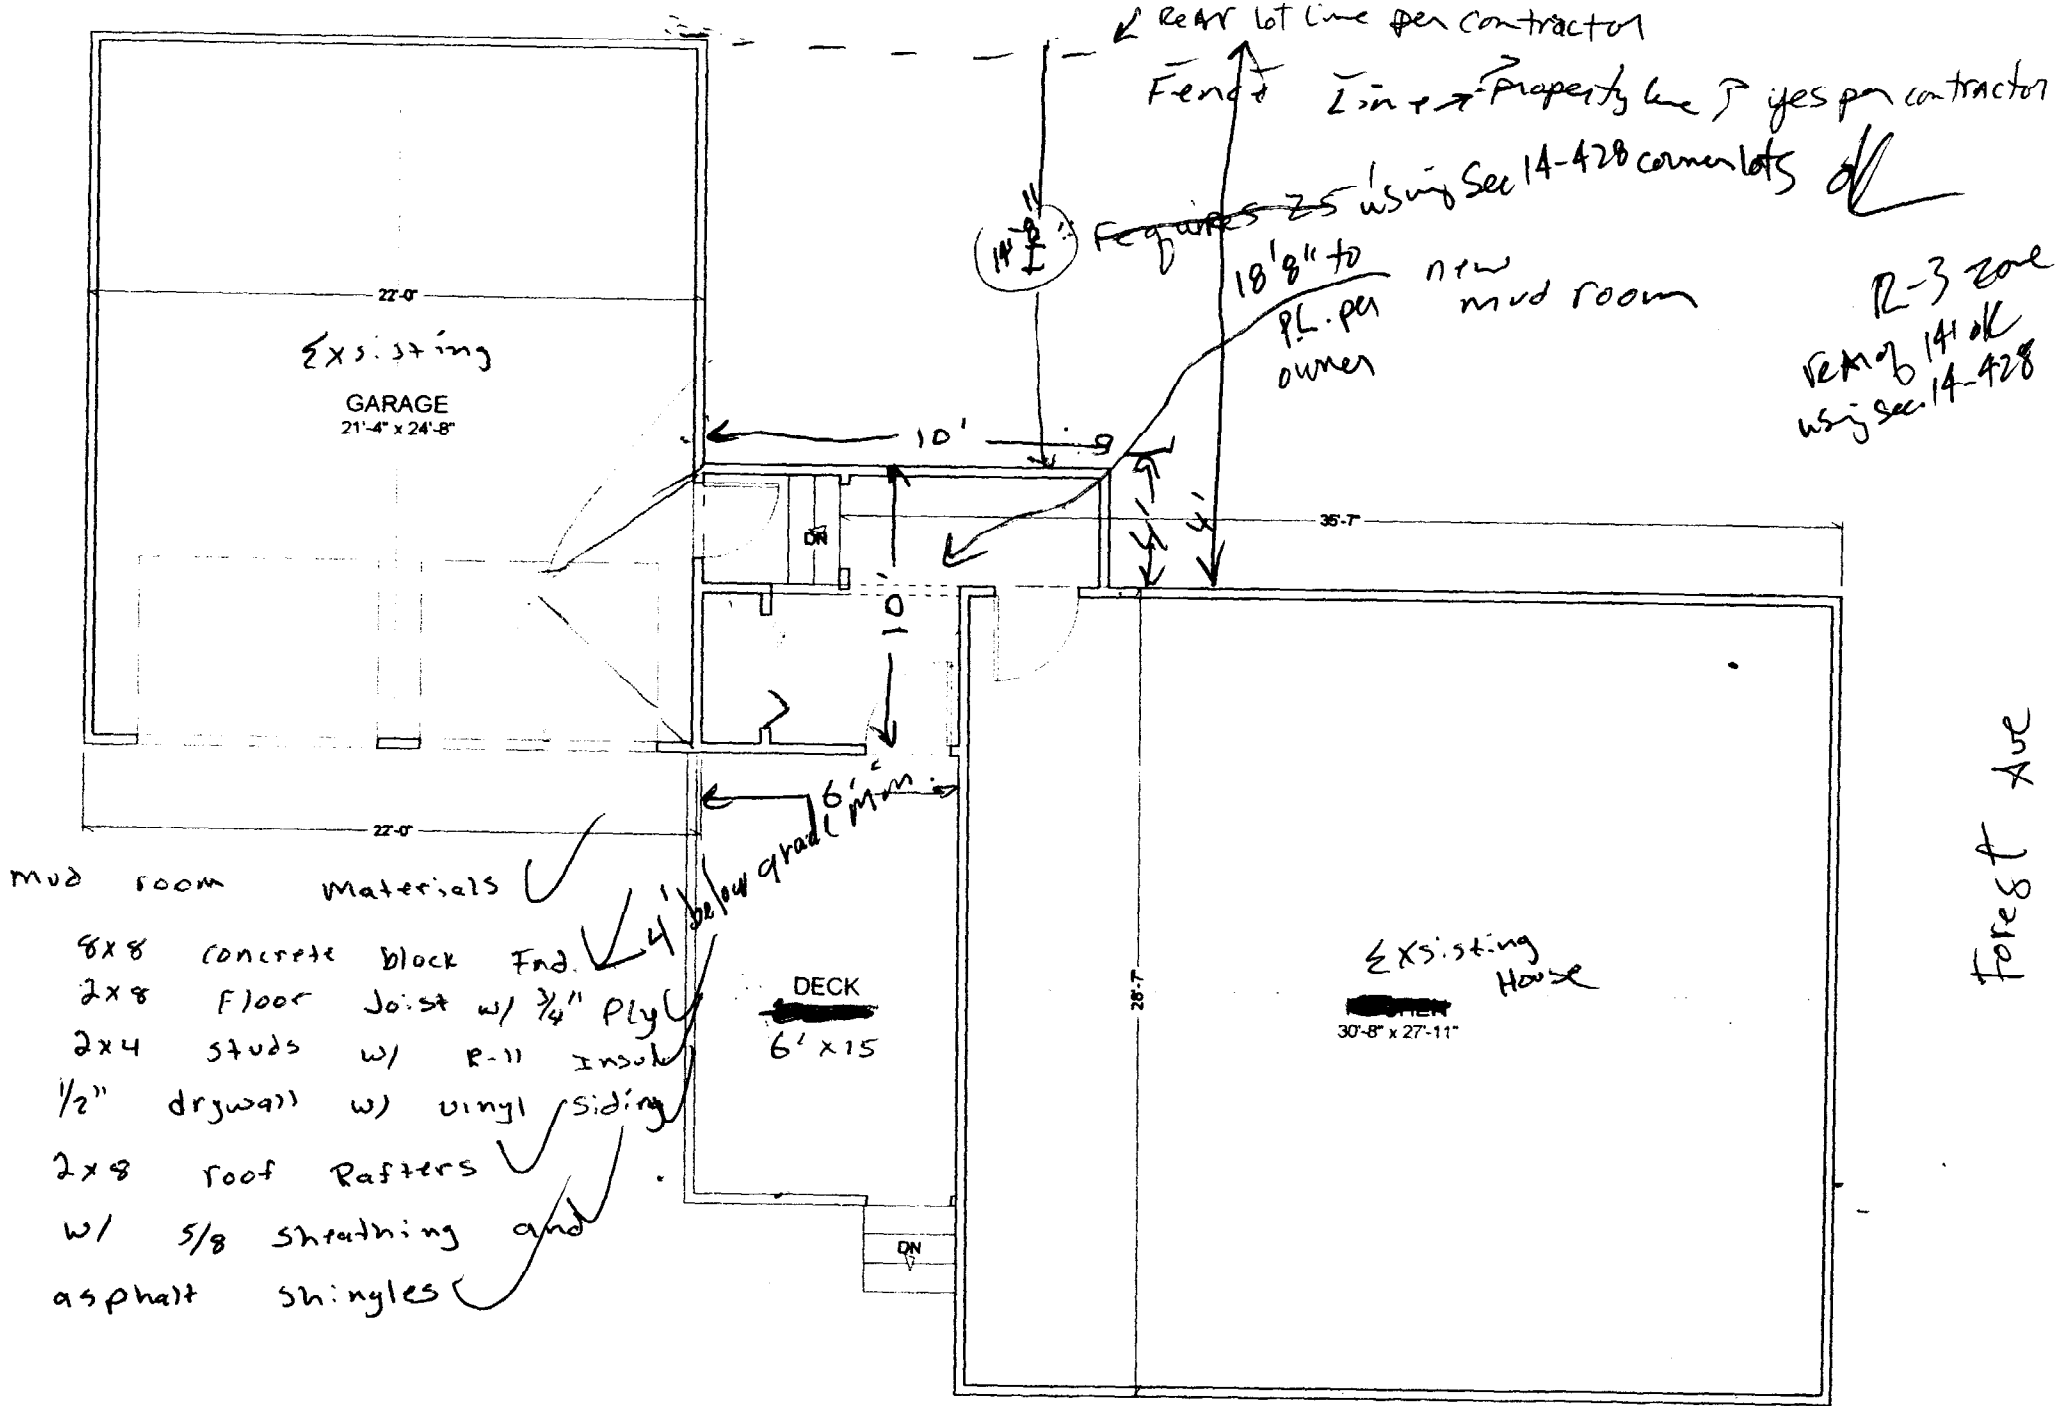 Rear lot line per contractor
Fence Line → Property line ? yes per contractor
14'-8" ± Requires 25' using Sec 14-428 corner lots OK
18'8" to
P.L. per
owner
new
mud room
R-3 zone
rear of 14' ok
using Sec. 14-428
22'-0"
Exsisting
GARAGE
21'-4" x 24'-8"
10'
35'-7"
DN
4'
4'
10'
6'
22'-0"
mud room materials
8x8 concrete block Fnd. 4' below grade min.
2x8 Floor Joist w/ 3/4" Ply
2x4 studs w/ R-11 Insul
1/2" drywall w/ vinyl siding
2x8 roof Rafters
w/ 5/8 sheathing and
asphalt shingles
DECK
6' x 15
DN
28'-7"
Exsisting
House
30'-8" x 27'-11"
Forest Ave